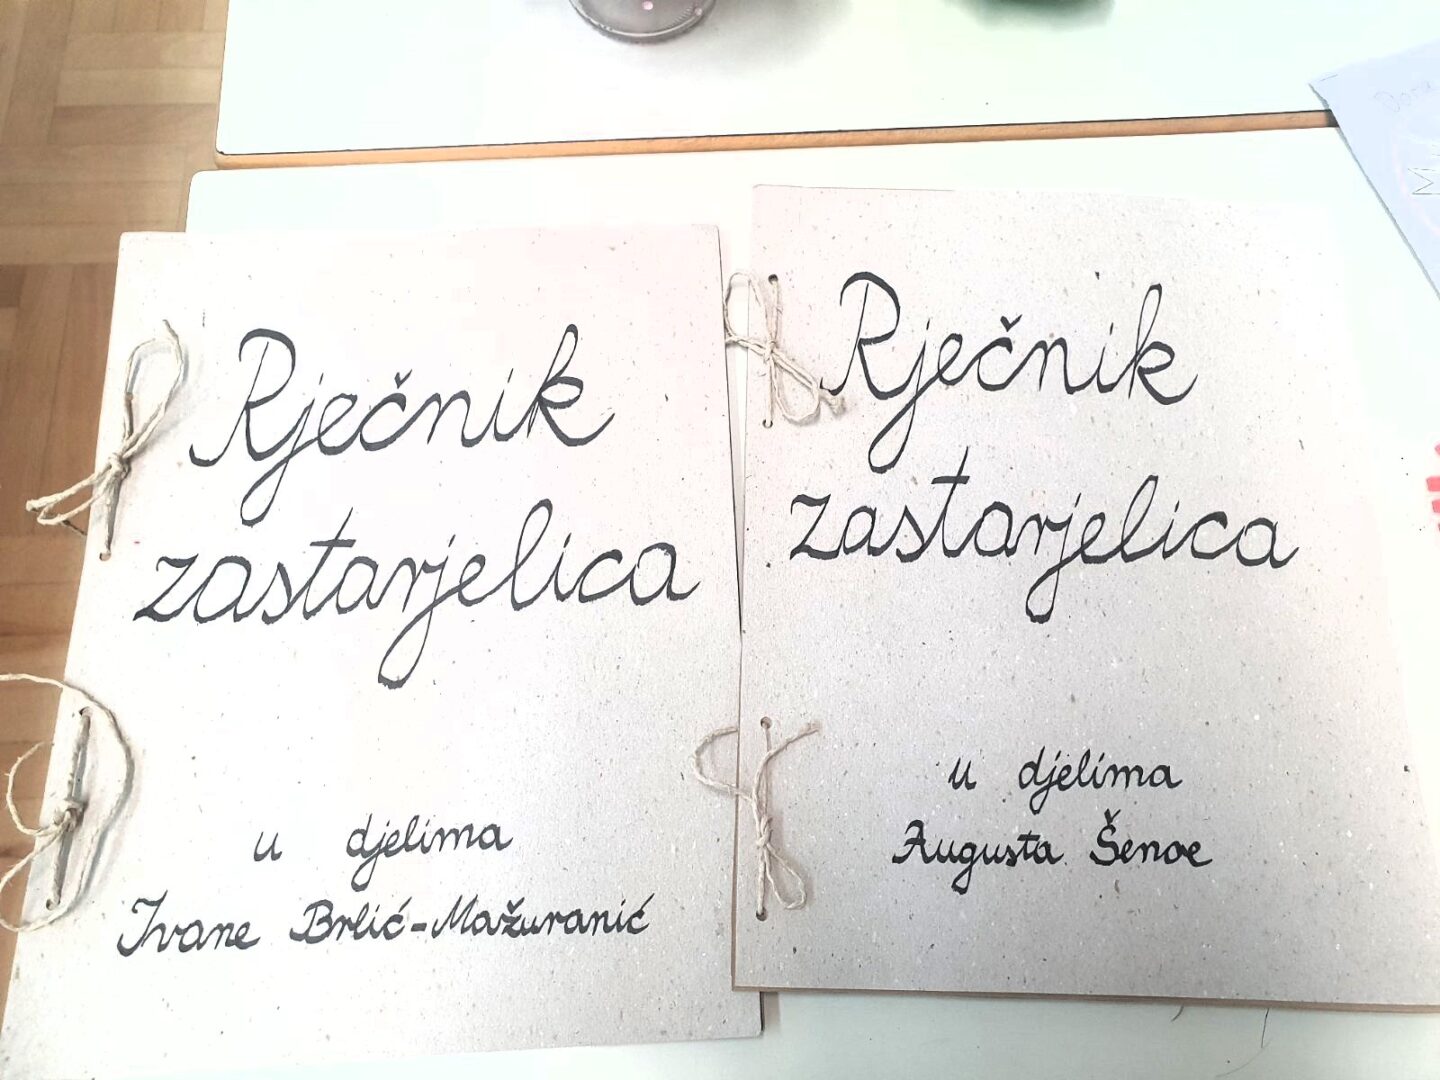 Rječnik
zastarjelica
u djelima
Ivane Brlić-Mažuranić
Rječnik
zastarjelica
u djelima
Augusta Šenoe